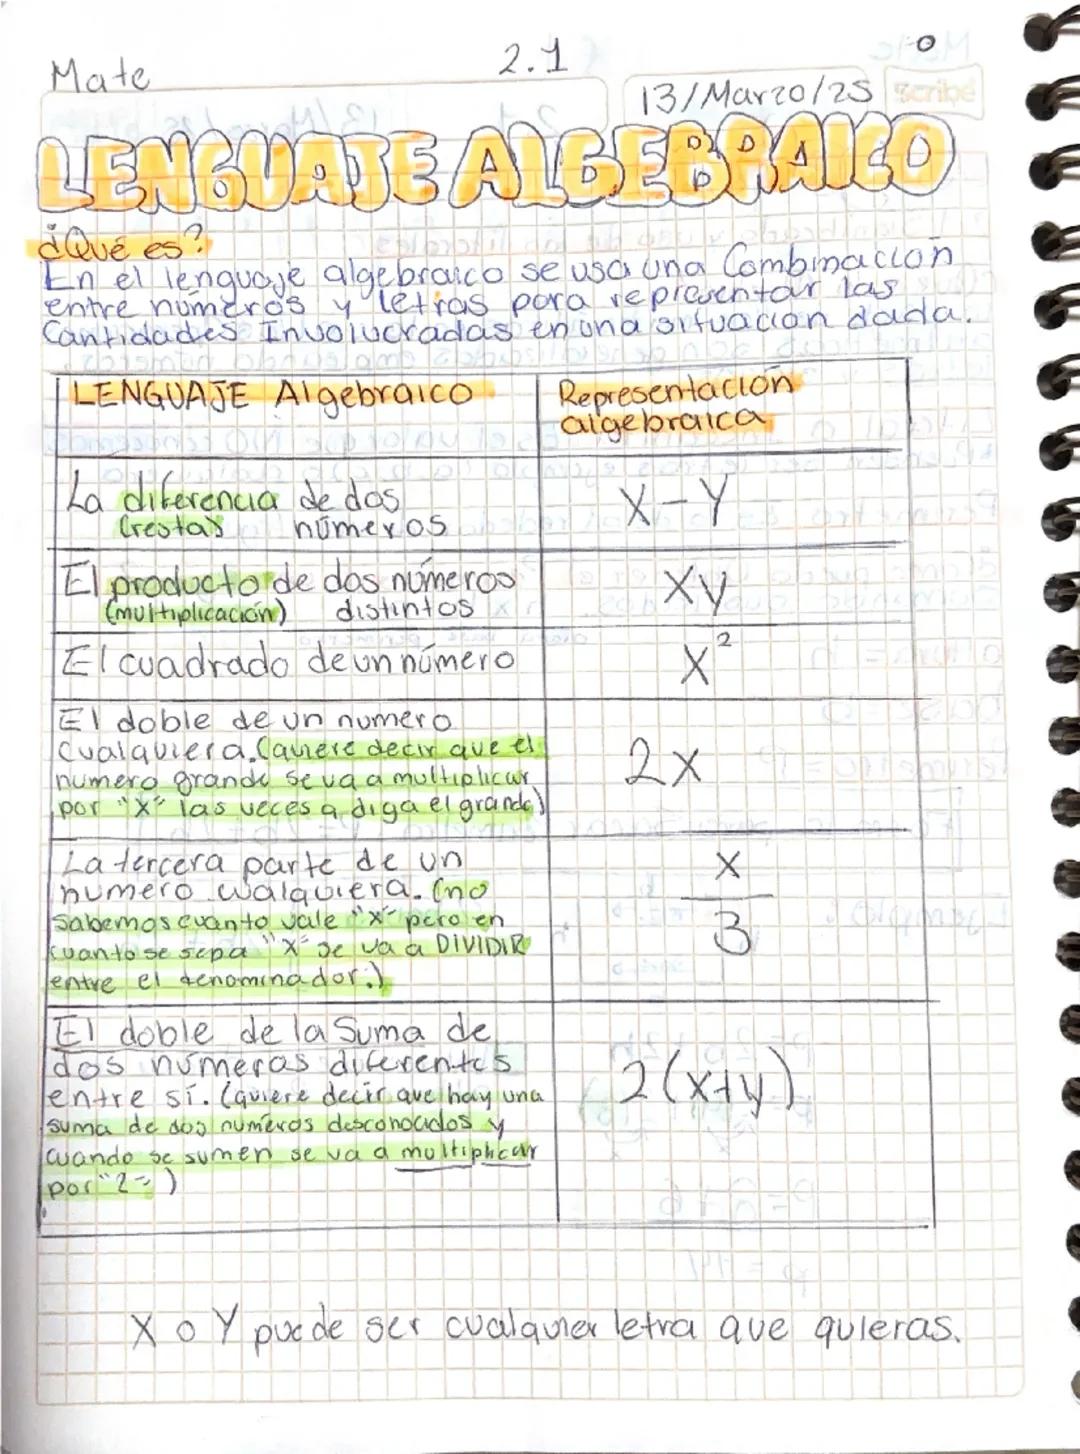 Mate
2.1
13/Marzo/25
scribe
LENGUAJE ALGEBRAICO
¿Qué es?
En el lenguaje algebraico se usa una Combinación
entre números y letras para representar las
Cantidades Involucradas en una situación dada.
LENGUAJE Algebraico
Representación
algebraica
La diferencia de dos
(resta) números
X-Y
El producto de dos números
(multiplicación) distintos
xy
El cuadrado de un número
X²
El doble de un numero
cualquiera. (quiere decir que el
numero grande se va a multiplicar
por "X" las veces q diga el grande)
2x
La tercera parte de un
numero cualquiera. (no
sabemos cuanto vale "x" pero en
cuanto se sepa "X" se va a DIVIDIR
entre el denominador.)
x
3
El doble de la Suma de
dos números diferentes
entre sí. (quiere decir que hay una
suma de dos números desconocidos y
cuando se sumen se va a multiplicar
por "2")
2(x+y)
X o Y puede ser cualquier letra que quieras.